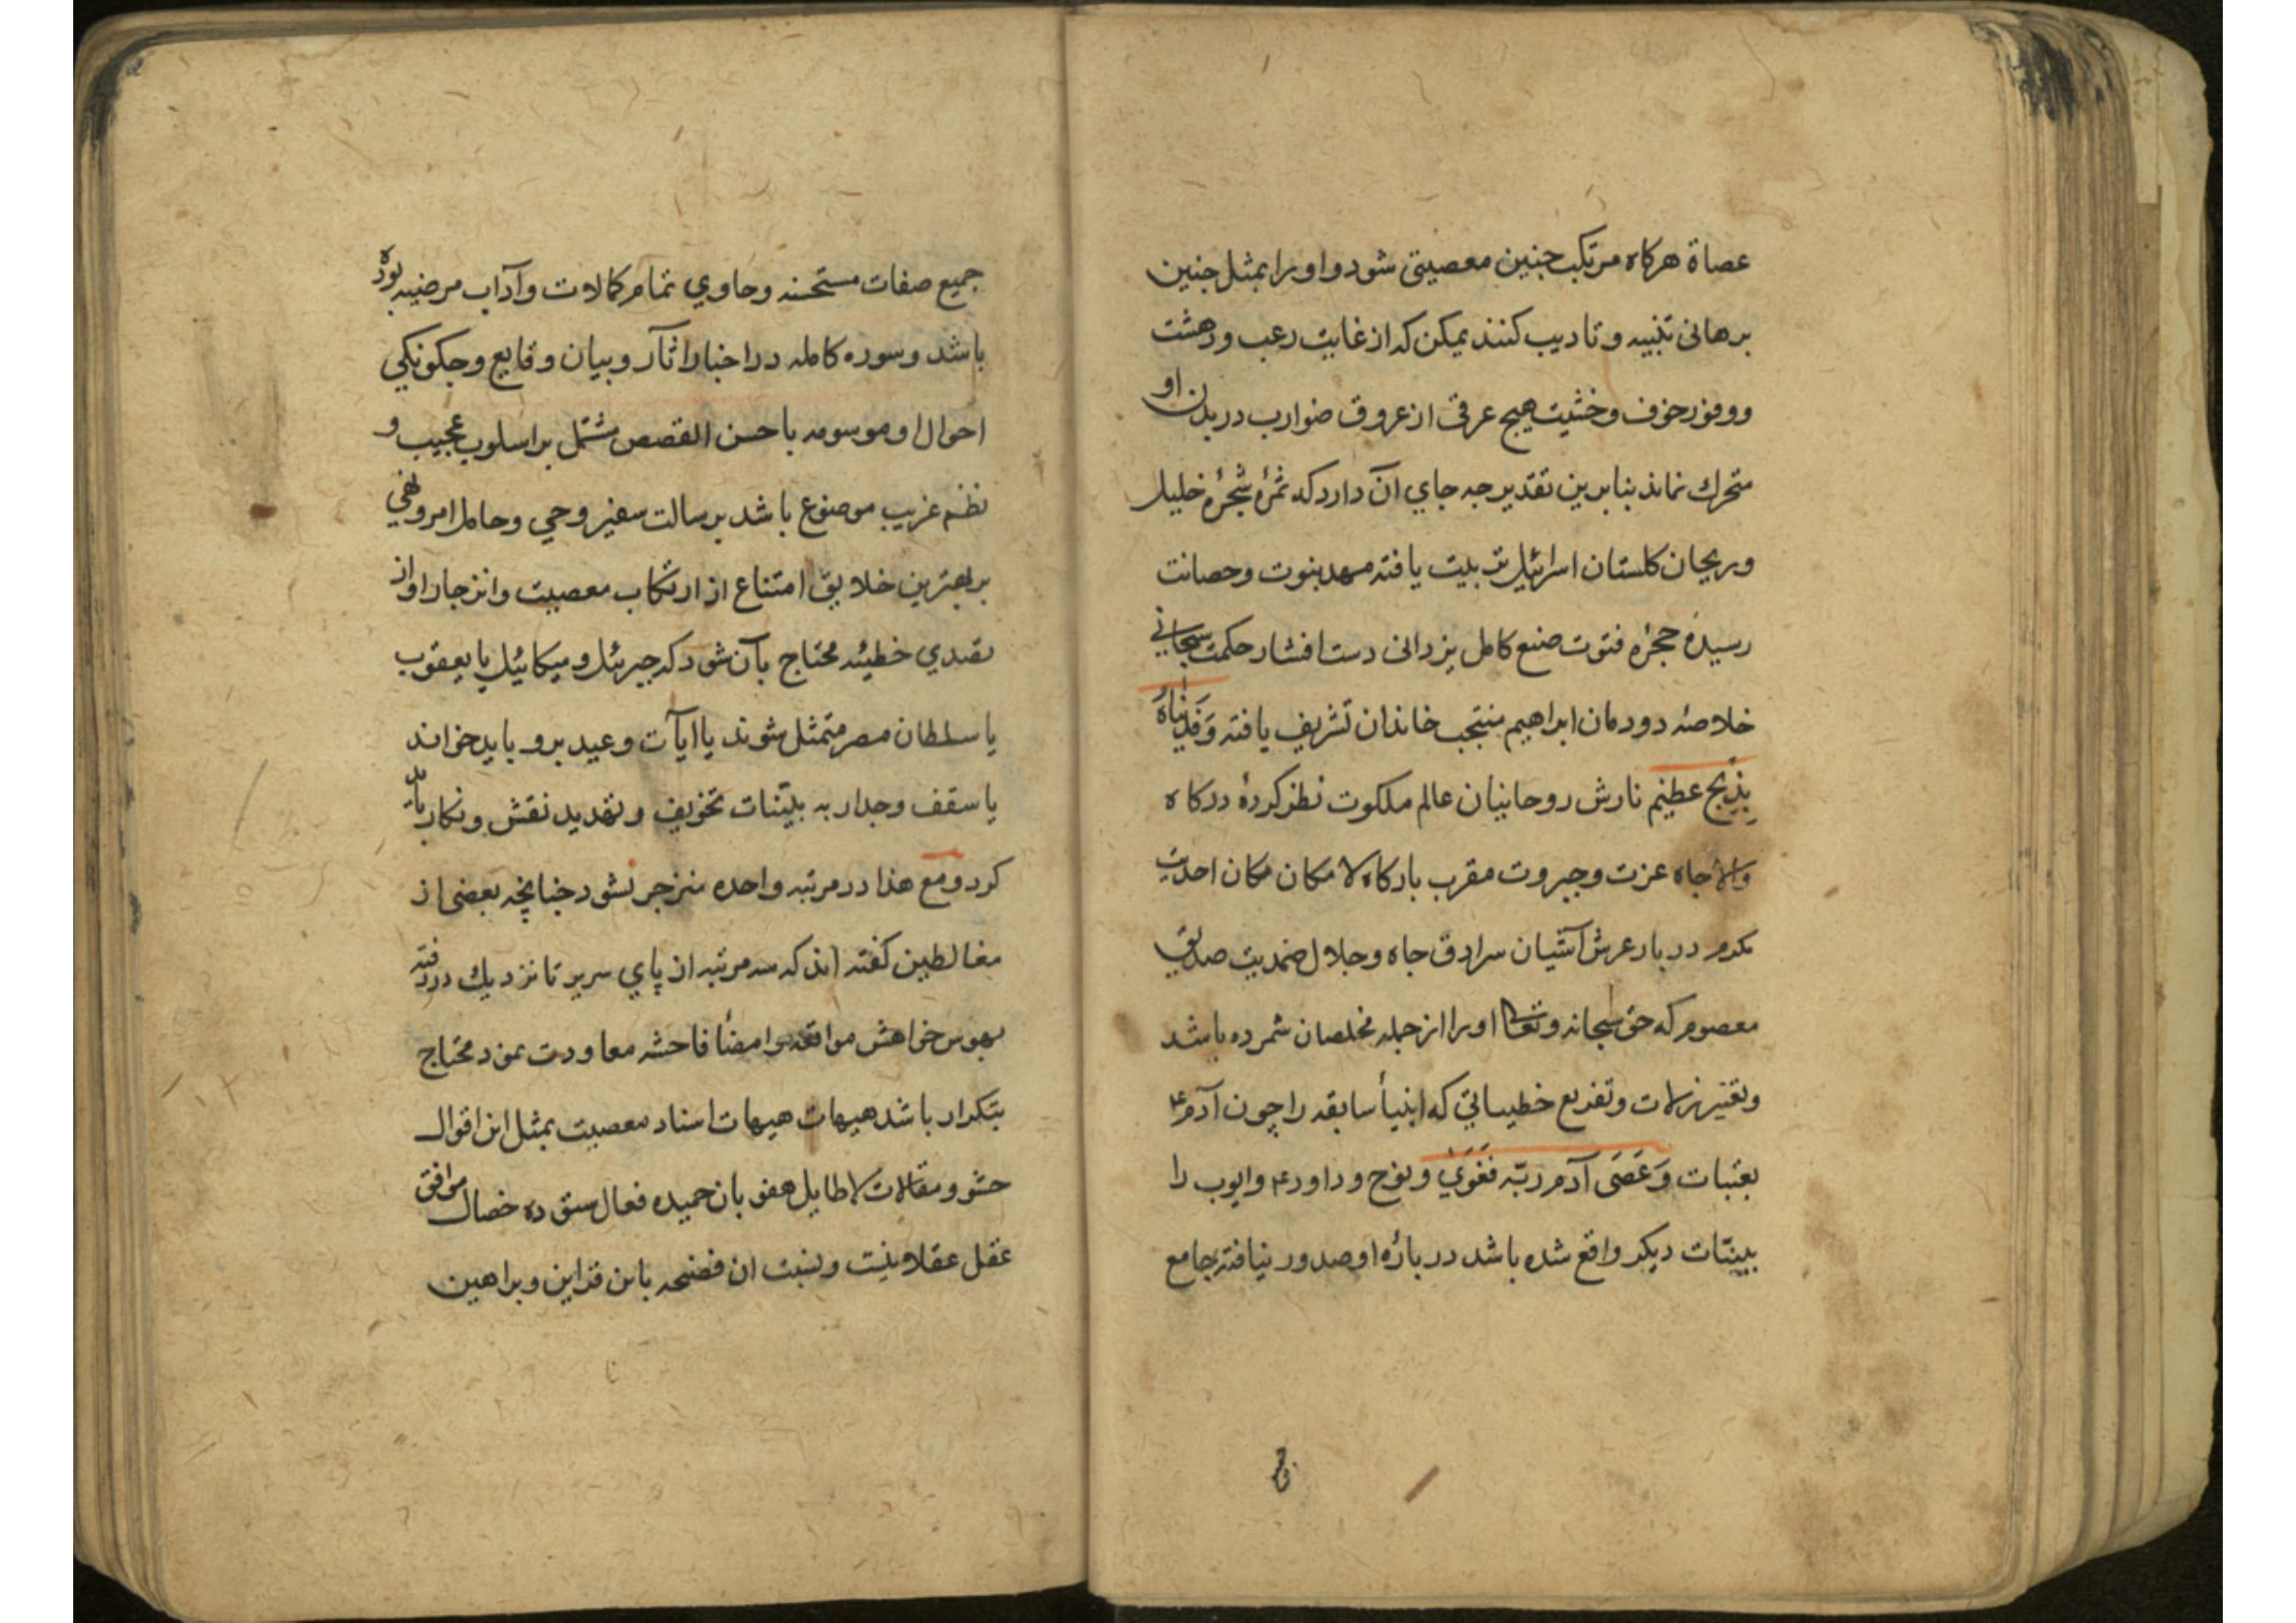 عصاة هركاه مرتكب جنين معصيتى شود واورا بمثل جنين
برهانى تنبيه وتاديب كنند يمكن كه از غايت رعب ودهشت
ووفور خوف وخشيت هيچ عرقى از عروق ضوارب در بدن او
متحرك نماند بنابرين تقدير چه جاي آن دارد كه ثمرۀ شجرۀ خليل
وريحان كلستان اسرائيل تربيت يافته مهد نبوت وحصانت
رسيدۀ حجرۀ فتوت صنع كامل يزدانى دست افشار حكمت سبحاني
خلاصۀ دودمان ابراهيم منتجب خاندان تشريف يافته وَفَدَيْنَاهُ
بِذِبْحٍ عظيم نازش روحانيان عالم ملكوت نظر كردۀ دركاه
والا جاه عزت وجبروت مقرب باركاه لا مكان مكان احديت
مكرم دربار عرش آشيان سرادق جاه وجلال صمديت صديق
معصوم كه حق سبحانه وتعالى اورا از جمله مخلصان شمرده باشد
وتعيير زلات وتقريع خطيياتي كه انبيأ سابقه را چون آدم ع
بعتبات وَعَصَى آدم ربّه فَغَوَىٰ ونوح وداود ع وايوب را
ببينّات ديكر واقع شده باشد در بارۀ او صدور نيافته بجامع
جميع
جميع صفات مستحسنه وحاوي تمام كمالات وآداب مرضيه بوده
باشد وسوره كامله در اخبار اثار وبيان وقايع وچكونكي
احوال او موسومه باحسن القصص مشتمل بر اسلوب عجيب و
نظم غريب موضوع باشد برسالت سفير وحي وحامل امر ونهي
بر بهترين خلايق امتناع از ارتكاب معصيت وانزجار او از
تصدي خطيئه محتاج بآن شود كه جبرئل وميكائيل يا يعقوب
يا سلطان مصر متمثل شوند يا ايآت وعيد برو بايد خواند
يا سقف وجدار به بيّنات تخويف وتهديد نقش ونكار بايد
كرد ومع هذا در مرتبه واحده منزجر نشود چنانچه بعضى از
مغالطين كفته اند كه سه مرتبه از پاي سرير تا نزديك در رفته
بهوس خواهش مواقعه وامضأ فاحشه معاودت نمود محتاج
بتكرار باشد هيهات هيهات اسناد معصيت بمثل اين اقوال
حشو ومقالات لا طايل هفو بان حميده فعال ستوده خصال موافق
عقل عقلا نيست ونسبت ان فضيحه باين قراين وبراهين